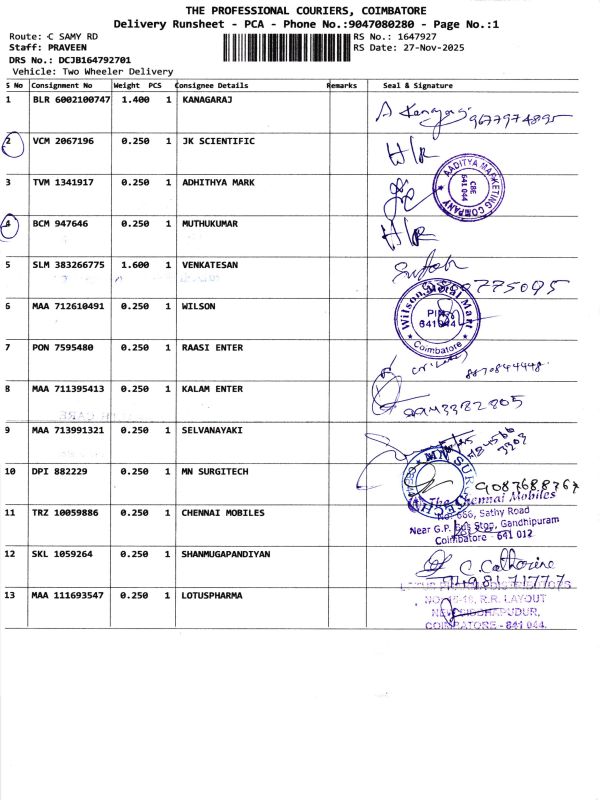 THE PROFESSIONAL COURIERS, COIMBATORE
Delivery Runsheet - PCA - Phone No.:9047080280 - Page No.:1
Route: C SAMY RD
RS No.: 1647927
Staff: PRAVEEN
RS Date: 27-Nov-2025
DRS No.: DCJB164792701
Vehicle: Two Wheeler Delivery
S No Consignment No Weight PCS Consignee Details Remarks Seal & Signature
1 BLR 6002100747 1.400 1 KANAGARAJ
9677974895
2 VCM 2067196 0.250 1 JK SCIENTIFIC
H/R
3 TVM 1341917 0.250 1 ADHITHYA MARK
AADITYA MARKETING COMPANY
CBE
641 044
4 BCM 947646 0.250 1 MUTHUKUMAR
H/R
5 SLM 383266775 1.600 1 VENKATESAN
6 MAA 712610491 0.250 1 WILSON
PIN
641044
Coimbatore
7 PON 7595480 0.250 1 RAASI ENTER
8870844448
8 MAA 711395413 0.250 1 KALAM ENTER
9943382805
9 MAA 713991321 0.250 1 SELVANAYAKI
10 DPI 882229 0.250 1 MN SURGITECH
11 TRZ 10059886 0.250 1 CHENNAI MOBILES
The Chennai Mobiles
Sathy Road
Near G.P. Bus Stop, Gandhipuram
Coimbatore - 641 012
12 SKL 1059264 0.250 1 SHANMUGAPANDIYAN
C. Catherine
13 MAA 111693547 0.250 1 LOTUSPHARMA
R.R. LAYOUT
COIMBATORE - 641 044.